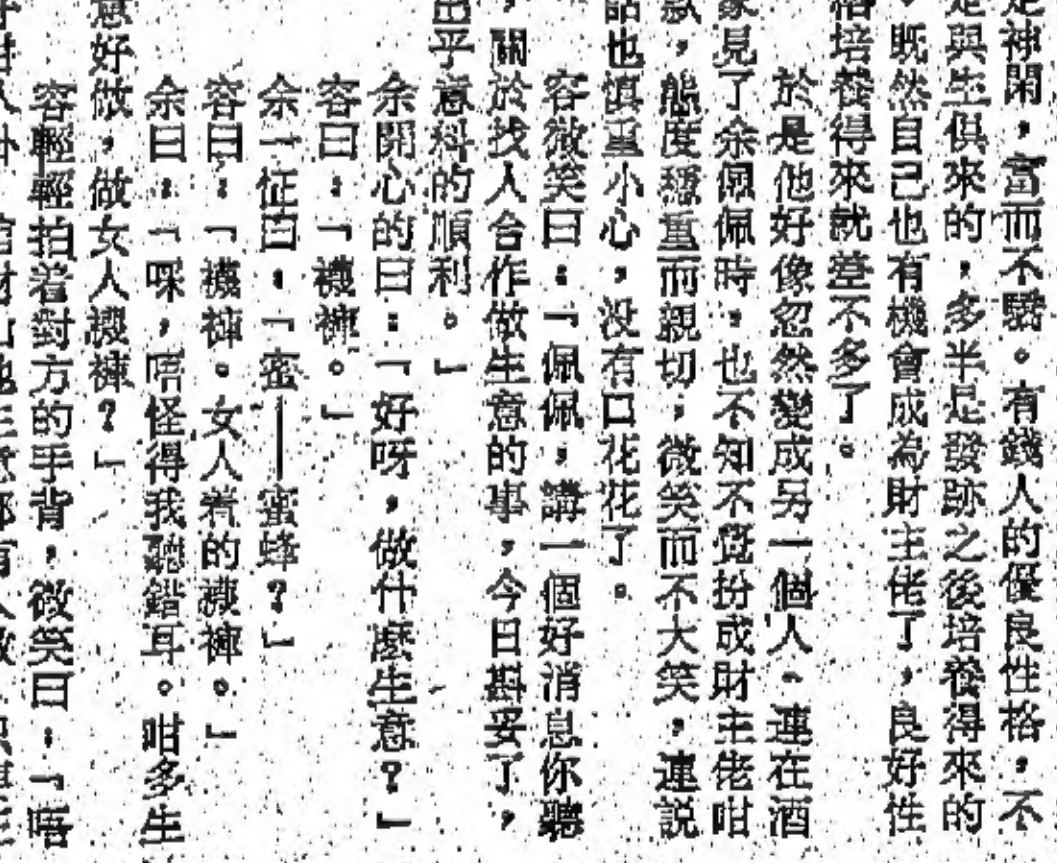 是神閑，富而不驕。有錢人的優良性格，不
是與生俱來的，多半是發跡之後培養得來的
，既然自己也有機會成為財主佬了，良好性
格培養得來就差不多了。
於是他好像忽然變成另一個人、連在酒
家見了余佩佩時，也不知不覺扮成財主佬咁
款，態度穩重而親切；微笑而不大笑，連説
話也慎重小心，没有口花花了。
容微笑曰：「佩佩，講一個好消息你聽
，關於找人合作做生意的事，今日斟妥了，
出乎意料的順利。」
余開心的曰：「好呀，做什麼生意？」
容曰：「襪褲。」
余一怔曰：「蜜——蜜蜂？」
容曰：「襪褲。女人着的襪褲。」
余曰：「咪，唔怪得我聽錯耳。咁多生
意好做，做女人襪褲？」
容輕輕拍着對方的手背，微笑曰：「唔